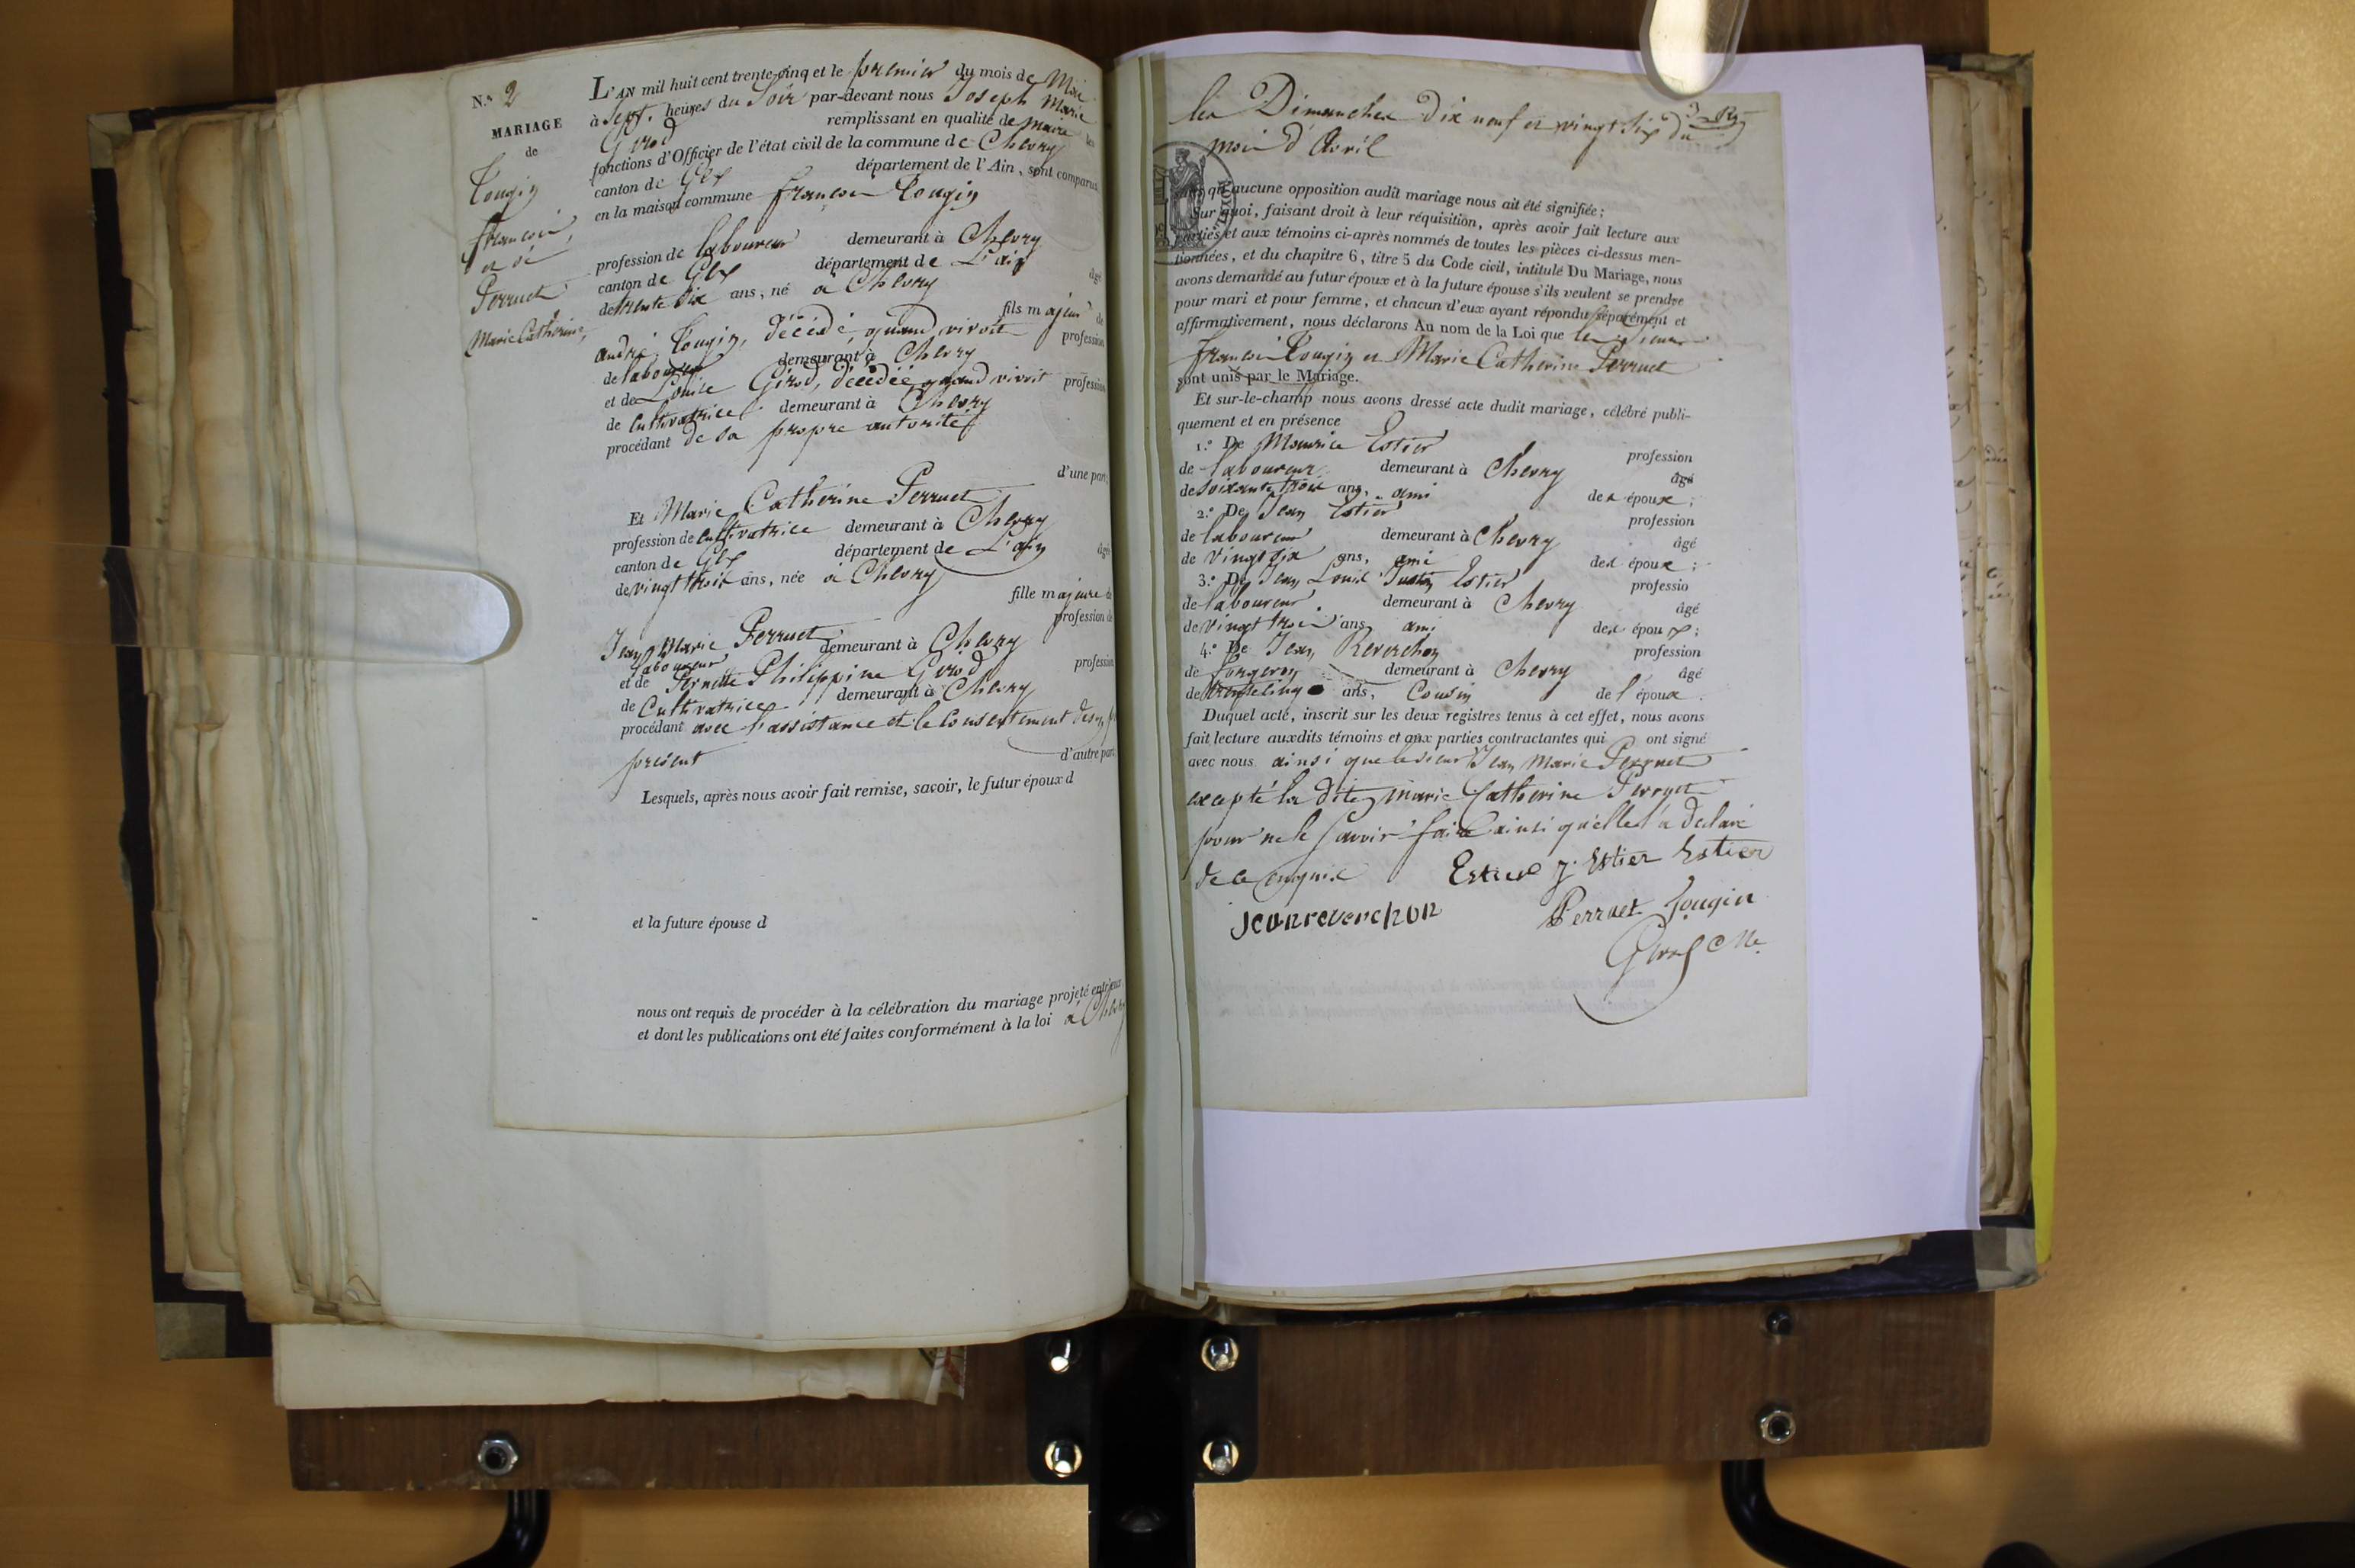 N.º 2
MARIAGE
de
Tougin
françois,
et de
Perruet
Marie Catherine,
L'AN mil huit cent trente-cinq et le premier du mois de Mai
à Sept heures du Soir par-devant nous Joseph Marie
Girod remplissant en qualité de maire les
fonctions d'Officier de l'état civil de la commune de Chevry
canton de Gex département de l'Ain, sont comparus
en la maison commune françois Tougin
profession de laboureur demeurant à Chevry
canton de Gex département de L'ain âgé
de trente six ans, né à Chevry
fils majeur de
andré Tougin, décédé, quand vivoit profession
de laboureur demeurant à Chevry
et de Louise Girod, décédée quand vivoit profession
de Cultivatrice demeurant à Chevry
procédant de sa propre autorité
d'une part;
Et Marie Catherine Perruet
profession de Cultivatrice demeurant à Chevry
canton de Gex département de L'ain âgée
de vingt trois ans, née à Chevry
fille majeure de
profession de
Jean Marie Perruet demeurant à Chevry
laboureur
et de Pernette Philippine Girod profession
de Cultivatrice demeurant à Chevry
procédant avec l'assistance et le Consentement de son
présent
d'autre part
Lesquels, après nous avoir fait remise, savoir, le futur époux d
et la future épouse d
nous ont requis de procéder à la célébration du mariage projeté entr'eux
et dont les publications ont été faites conformément à la loi à Chevry
les Dimanches dix neuf et vingt six du
mois d'Avril
sans qu'aucune opposition audit mariage nous ait été signifiée;
Sur quoi, faisant droit à leur réquisition, après avoir fait lecture aux
parties et aux témoins ci-après nommés de toutes les pièces ci-dessus men-
tionnées, et du chapitre 6, titre 5 du Code civil, intitulé Du Mariage, nous
avons demandé au futur époux et à la future épouse s'ils veulent se prendre
pour mari et pour femme, et chacun d'eux ayant répondu séparément et
affirmativement, nous déclarons Au nom de la Loi que les sieurs
françois Tougin et Marie Catherine Perruet
sont unis par le Mariage.
Et sur-le-champ nous avons dressé acte dudit mariage, célébré publi-
quement et en présence
1.º De Maurice Estier profession
de laboureur demeurant à Chevry âgé
de soixante trois ans, ami des époux;
2.º De Jean Estier profession
de laboureur demeurant à Chevry âgé
de vingt six ans, ami des époux;
3.º De Jean Louis Justin Estier professio
de laboureur demeurant à Chevry âgé
de vingt trois ans ami des époux;
4.º De Jean Reverchon profession
de forgeron demeurant à Chevry âgé
de trente cinq ans, Cousin de l'époux.
Duquel acte, inscrit sur les deux registres tenus à cet effet, nous avons
fait lecture auxdits témoins et aux parties contractantes qui ont signé
avec nous ainsi que le sieur Jean Marie Perruet
excepté la dite Marie Catherine Perruet
pour ne le savoir faire ainsi qu'elle l'a déclaré
de ce enquise Estier J. Estier Estier
jeanreverchon Perruet Tougin
Girod Me